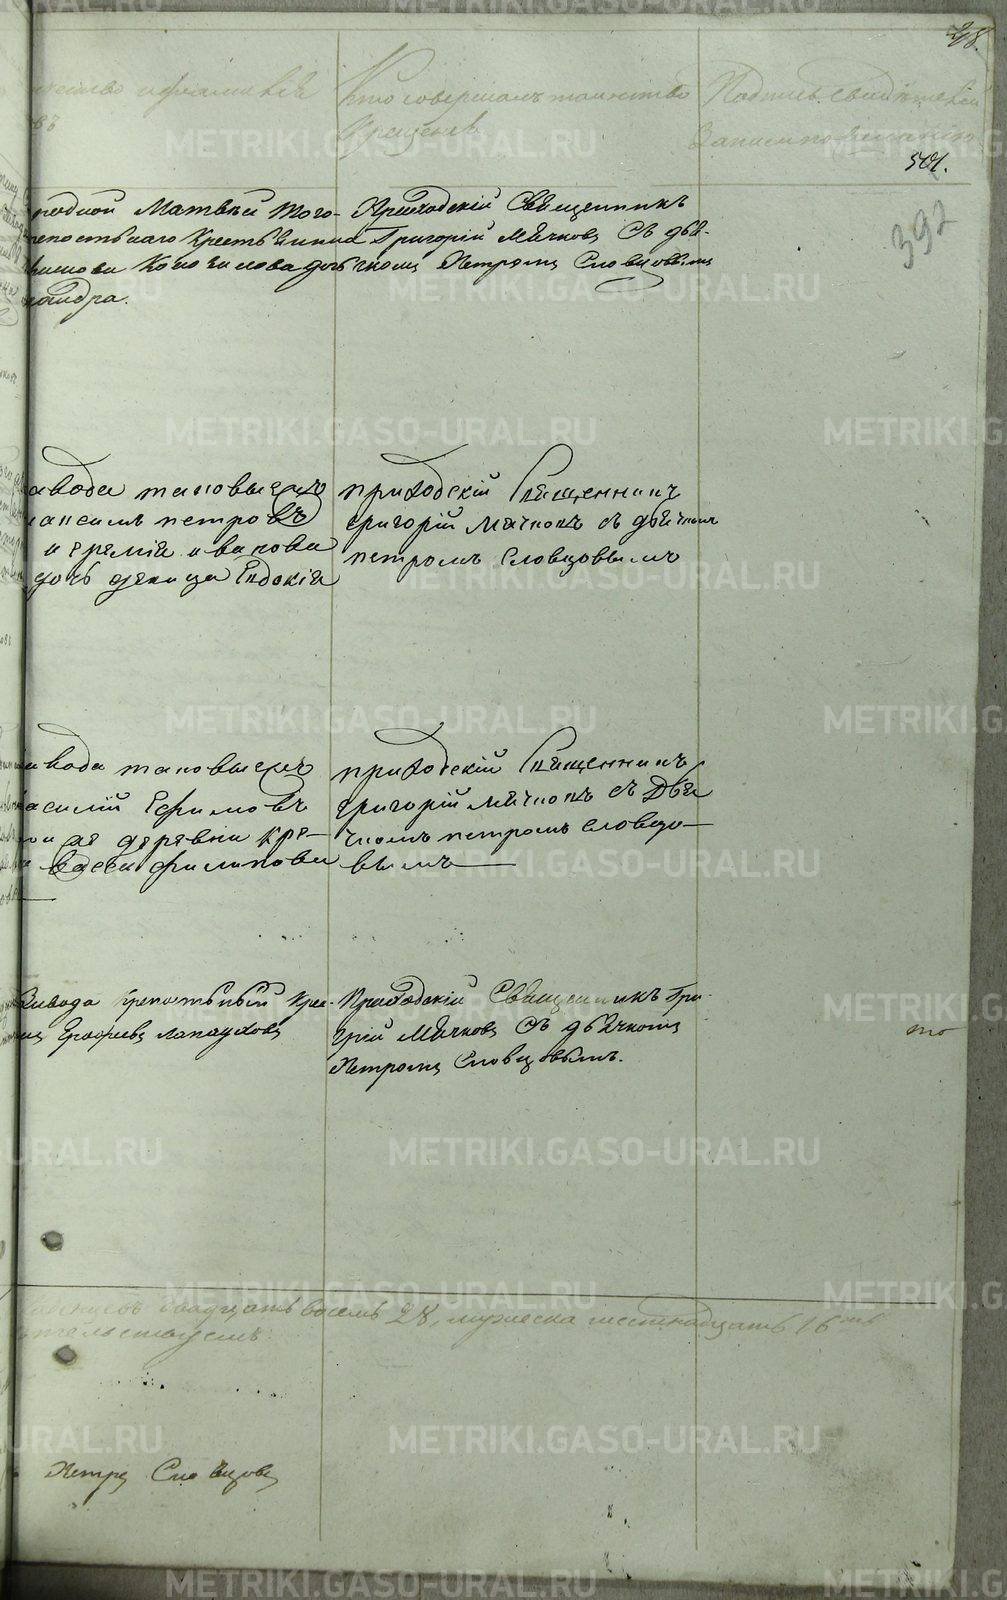 28.
Кто совершалъ таинство
Крещенія
Подпись свидѣтелей
записи по желанію
501.
392
родной Матвѣй Того-
крестьянина
дочь
сандра.
Приходскій Священникъ
Григорій Мячковъ Съ дья-
чкомъ Петромъ Словцовымъ
авода таковыхъ
аксимъ петровъ
и Еремія иванова
дочь девица Евдокія
приходскій Священникъ
григорій Мячковъ съ дьячкомъ
петромъ Словцовымъ
авода таковыхъ
асилій Ефимовъ
деревни кре-
филипова
приходскій Священникъ
григорій мячковъ съ Дья
чкомъ петромъ словцо-
вымъ
Завода крепостный Кре-
Ерофеевъ
Приходскій Священникъ Гри-
горій Мячковъ Съ дьячкомъ
Петромъ Словцовымъ.
то
двадцать восемь 28, мужеска шестнадцать 16ть
Петръ Словцовъ
METRIKI.GASO-URAL.RU